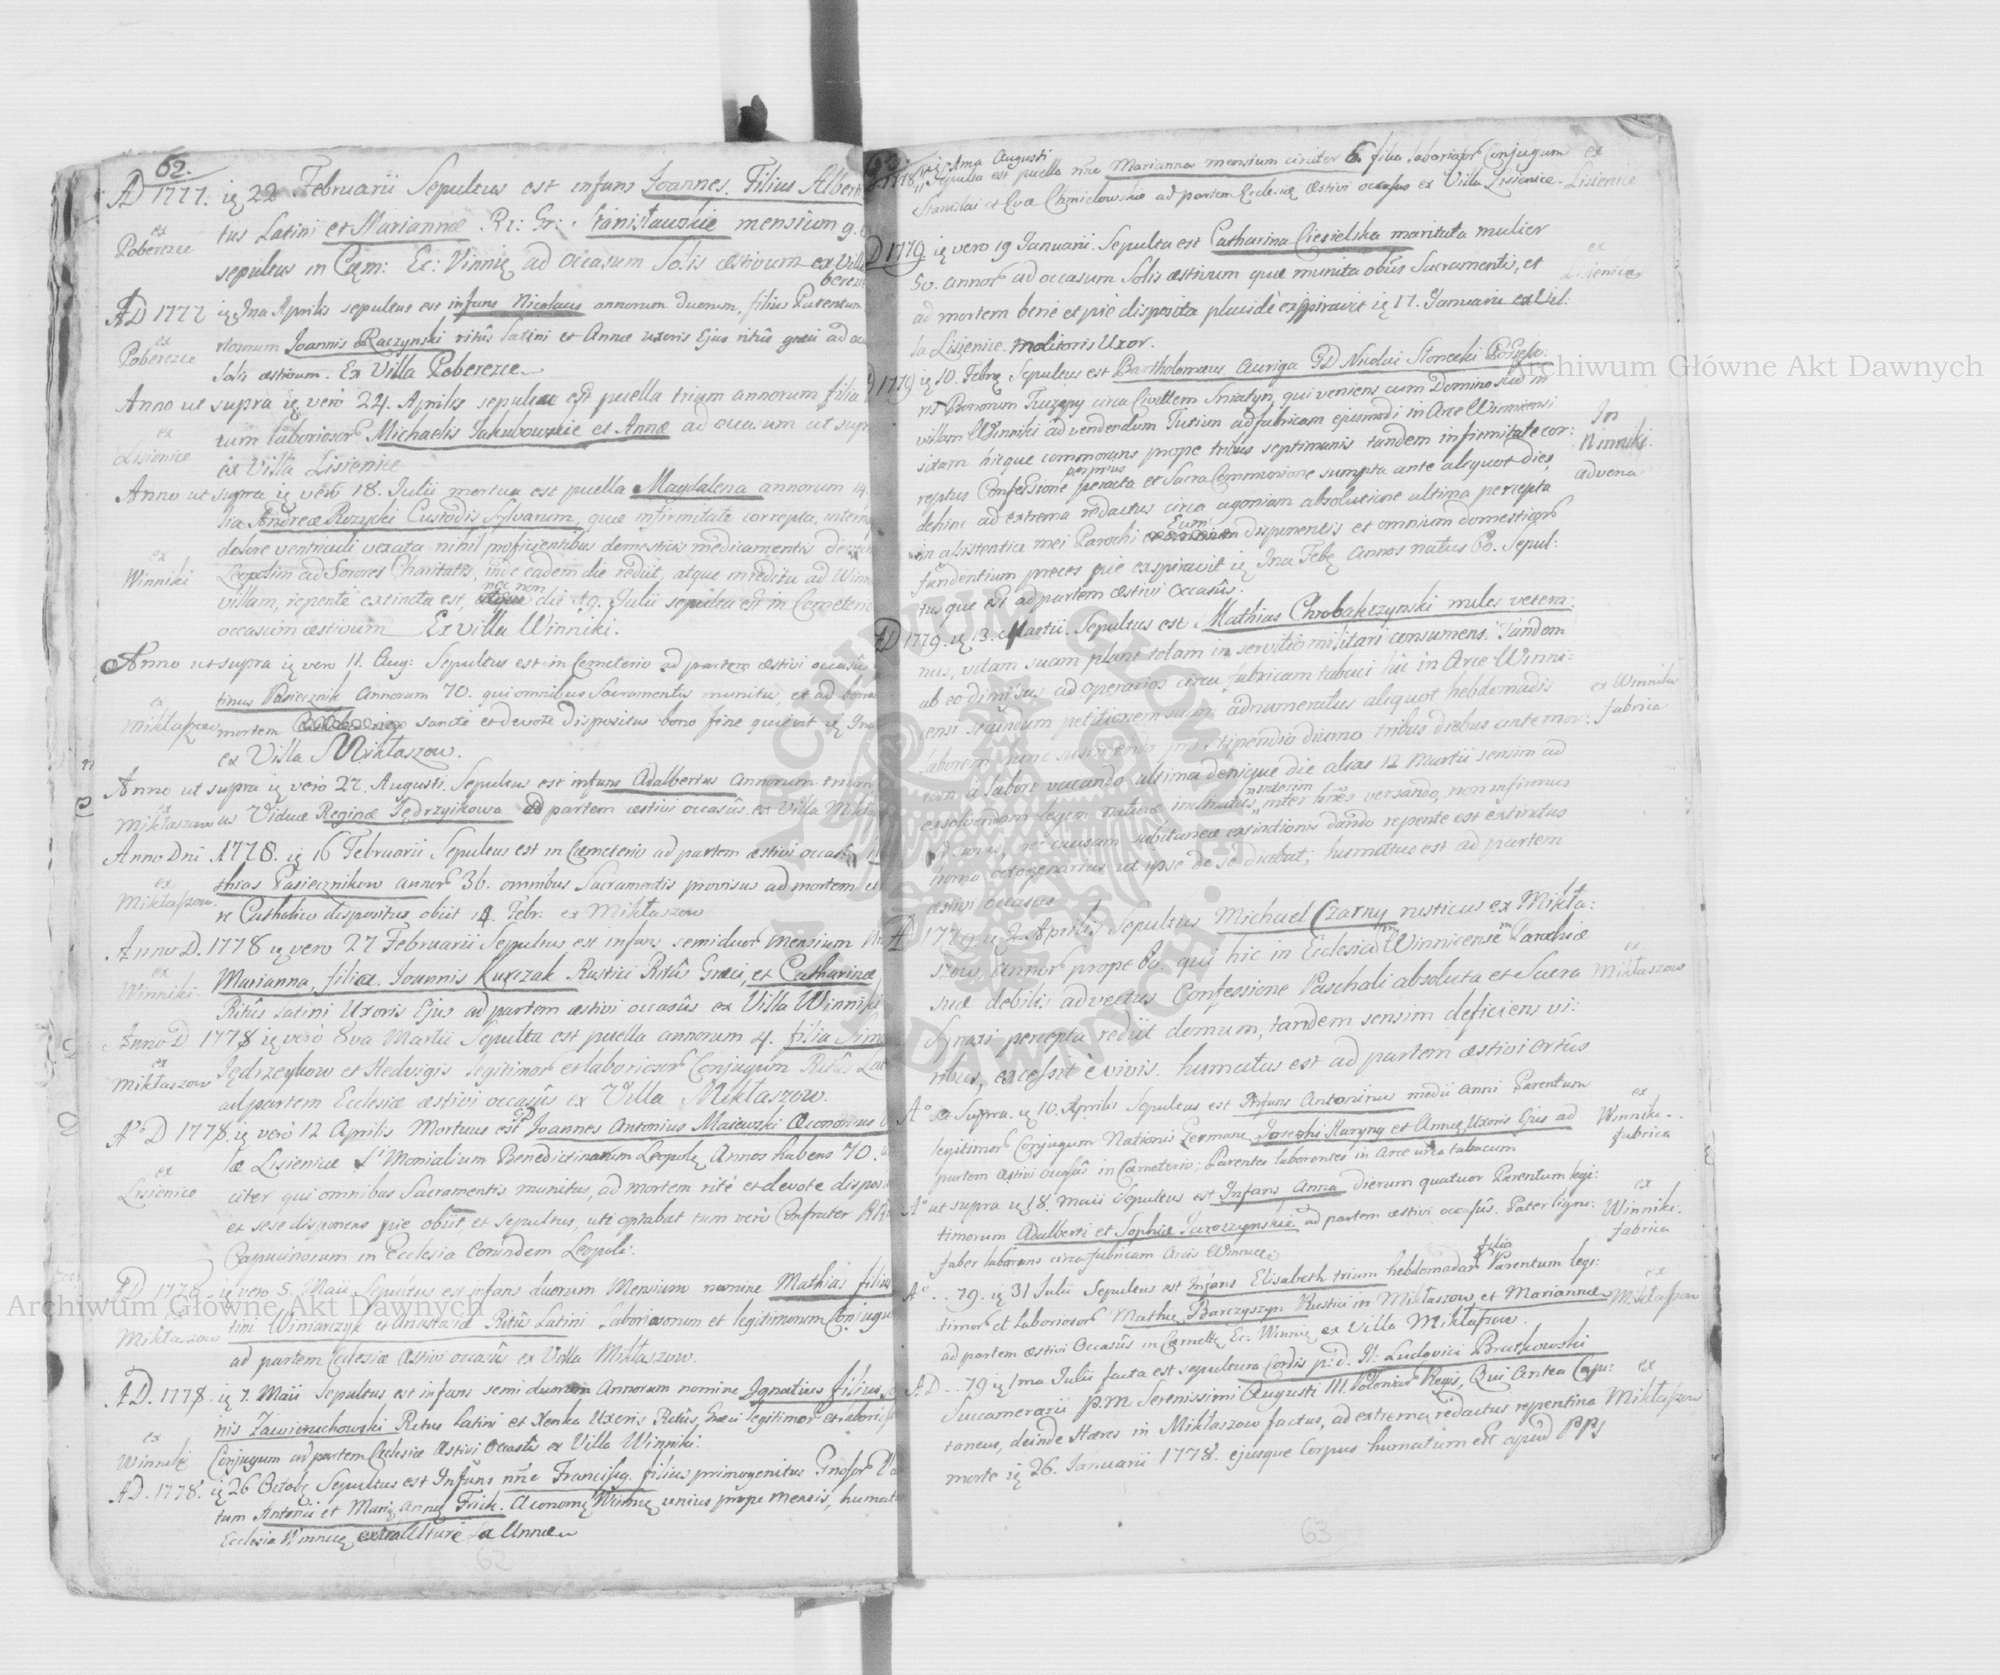 62.
AD 1777. ię 22 Februarii Sepultus est infans Joannes. Filius Albert
tus Latini et Mariannæ Rt: Gr: Stanisławskie mensium 9.
ex
Poberezce
sepultus in Cæm: Ec: Vinnię ad occasum Solis æstivum ex Villa
berez
AD 1777 ię Ima Aprilis sepultus est infans Nicolaus annorum duorum, filius Parentum
ex
Poberezce
riosorum Joannis Raczynski ritûs latini et Annæ uxoris Ejus ritûs græci ad oc
Solis æstivum. Ex Villa Poberezce
Anno ut supra ię vero 24. Aprilis sepulta est puella trium annorum filia
ex
Lisienice
rum laboriosor Michaelis Jakubowskie et Annæ ad occasum ut supr
ex Villa Lisienice
Anno ut supra ię verò 18. Julii mortua est puella Magdalena annorum 14.
lia Andreæ Rozycki Custodis Sylvarum, quæ infirmitate correpta, intern
dolore ventriculi vexata, nihil proficientibus domesticis medicamentis
ex
Winniki
Leopolim ad Sorores Charitatis, inde eadem die rediit, atque in reditu ad Winn
nec non
villam, repentè extincta est, die 19. Julii sepulta est in Cœmeterio
occasum æstivum Ex villa Winniki.
Anno ut supra ię vero 11. Aug: Sepultus est in Cemeterio ad partem æstivi occasûs
tinus Pasiecznik Annorum 70. qui omnibus Sacramentis munitus, et ad bonam
ex
Mikłaszow
mortem sanctè et devotè dispositus bono fine quievit ię
ex Villa Mikłaszow.
Anno ut supra ię verò 27. Augusti. Sepultus est infans Adalbertus annorum trium
ex
Mikłaszow
us Viduæ Reginæ Jędrzyikowa ad partem æstivi occasûs ex Villa Mikłasz
Anno Dni 1778. ię 16 Februarii Sepultus est in Cæmeterio ad partem æstivi occasûs
ex
Mikłaszow.
thias Pasiecznikow annor 36. omnibus Sacramentis provisus ad mortem
re Catholico dispositus obiit 14. Febr: ex Mikłaszow
Anno D. 1778 ię vero 27 Februarii Sepultus est infans semiduor mensium
ex
Winniki.
Marianna, filiæ Joannis Kurczak Rustici Ritûs Græci, et Catharinæ
Ritûs Latini Uxoris Ejus ad partem æstivi occasûs ex Villa Winniki
Anno D 1778 ię verò 8va Martii Sepulta est puella annorum 4. filia Sim
ex
Mikłaszow
Jędrzeykow et Hedvigis legitimor et laboriosor Conjugum Ritûs Lat
ad partem Ecclesiæ æstivi occasûs ex Villa Mikłaszow.
Aº D 1778. ię verò 12 Aprilis Mortuus est GD Joannes Antonius Maiewski Œconomus
læ Lisienicæ Monialium Benedictinarum Leopolię Annos habens 70.
ex
Lisienice
citer qui omnibus Sacramentis munitus, ad mortem ritè et devotè dispos
et sese disponens pie obiit, et sepultus, uti optabat tum verò Confrater
Capucinorum in Ecclesia Eorundem Leopoli:
AD. 1778. ię vero 5. Maii Sepultus est infans duorum Mensium nomine Mathias filius
ex
Mikłaszow
tini Winiarczyk et Anastasiæ Ritûs Latini Laboriosorum et legitimorum Conjugu
ad partem Ecclesiæ Æstivi occasûs ex Villa Mikłaszow.
AD. 1778. ię 7. Maii Sepultus est infans semi duorum Annorum nomine Ignatius filius,
nis Zawieruchowski Ritus Latini et Xenka Uxoris Ritûs Græci legitimor et labori
ex
Winniki
Conjugum ad partem Ecclesiæ Æstivi Occasûs ex Villa Winniki.
AD. 1778. ię 26 Octobę Sepultus est Infans nne Franciscę. filius primogenitus Gnosor
tum Antonii et Marię Annę Frick. Æconomi Winnię unius prope Mensis, humat
Ecclesia Winnicę
ię Ima Augusti
Sepulta est puella nne Marianna mensium circiter 6. filia laboriosor Conjugum
ex
Lisienice
Stanislai et Evæ Chmielowskie ad partem Ecclesiæ Æstivi occasus ex Villa Lisienice.
D 1779 ię vero 19 Januarii. Sepulta est Catharina Ciesielska maritata mulier
ex
Lisienice
50. annor ad occasum Solis æstivum quæ munita obûs Sacramentis, et
ad mortem benè et piè disposita placidè exspiravit ię 17. Januarii ex Vil:
la Lisienice. Molitoris Uxor.
D 1779 ię 10. Febrę Sepultus est Bartholomæus Auriga GD Nicolai Słonecki
ris Bonorum Tuczępy circa Civittem Sniatyn, qui veniens cum Domino suo in
villam Winniki ad vendendum Tutiun ad fabricam ejusmodi in Arce Winnicensi
In
Winniki.
advena
sitam hicque commorans prope tribus septimanis tandem infirmitate cor:
reptus Confessione perprius peracta et Sacra Communione sumpta ante aliquot dies,
dehinc ad extrema redactus circa agoniam absolutione ultima percepta
in assistentia mei Parochi Eum disponentis et omnium domesticor
fundentium preces pie exspiravit ię Ima Febę Annos natus 60. Sepul:
tusque est ad partem æstivi Occasûs.
AD 1779. ię 13. Martii. Sepultus est Mathias Chrobakczynski miles vetera:
nus, vitam suam planè totam in servitio militari consumens. Tandem
ab eo dimissus ad operarios circa fabricam tabaci hic in Arce Winni:
ex Winniki
fabrica
censi secundum petitionem suam adnumeratus aliquot hebdomadis
laborem hunc pro stipendio diurno tribus diebus ante mor:
tem à labore vacando ultima denique die alias 12 Martii sensim ad
exsolvendam legem naturæ inclinatus, nunterim inter hnes versando, non infirmus
causam subitaneæ extinctionis dando repente est extinctus
homo octogenarius ut ipse de se dicebat; humatus est ad partem
æstivi occasus
A 1779 ię 2. Aprilis Sepultus Michael Czarny rusticus ex Mikła:
szow, annor prope 60. qui hic in Ecclesia Winnicensem Parochiæ
ex
Mikłaszow
suæ debilis advectus Confessione Paschali absoluta et Sacra
Synaxi percepta rediit domum, tandem sensim deficiens vi:
ribus, excessit è vivis. humatus est ad partem æstivi ortûs
Aº ut Supra. ię 10. Aprilis Sepultus est Infans Antoninus medii Anni Parentum
ex
Winniki.
fabrica
legitimor Conjugum Nationis Germanę Josephi Haryny et Annæ Uxoris Ejus ad
partem Æstivi Occasûs in Cœmeterio; Parentes laborantes in Arce circa tabacum
Aº ut supra ię 18. Maii Sepultus est Infans Anna dierum quatuor Parentum legi:
ex
Winniki.
fabrica
timorum Adalberti et Sophiæ Juroszynskie ad partem æstivi occasûs. Pater ligni:
faber laborans circa fabricam Arcis Winnicę
filia
Aº .. 79. ię 31 Julii Sepultus est Infans Elisabeth trium hebdomadar Parentum legi:
ex
Mikłaszow
timor et Laboriosor Mathię Barczyszyn Rustici in Mikłaszow et Mariannæ
ad partem æstivi Occasûs in Cæmetę Ec: Winnię ex Villa Mikłaszow.
AD .. 79 ię Ima Julii facta est sepultura Cordis p: d. M: Ludovici Bratkowski
ex
Mikłaszow
Succamerarii p.m Serenissimi Augusti III. Poloniar Regis, Qui Antea Capi:
taneus, deinde Hæres in Mikłaszow factus, ad extrema redactus repentina
morte ię 26. Januarii 1778. ejusque Corpus humatum est apud PPJ
62
63
Archiwum Główne Akt Dawnych
Archiwum Główne Akt Dawnych
ARCHIWUM GŁÓWNE AKT DAWNYCH